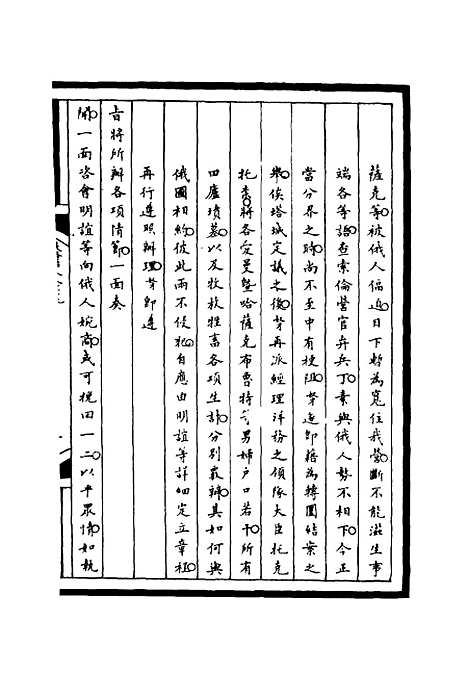 薩克等被俄人偪迫日下暫為寬住我營斷不能滋生事
端各等語查索倫營官弁兵丁素與俄人勢不相下今正
當分界之時尚不至中有梗阻奴才等即藉為轉圜結案之
俟塔城定議之後奴才再派經理洋務之領隊大臣托克
托奈將各愛曼暨哈薩克布魯特等男婦戶口若干所有
田廬墳墓以及牧放牲畜各項生計分別嚴辦其如何與
俄國相約彼此兩不侵犯自應由明誼等詳細定立章程
再行遵照辦理奴才即遵
旨將所辦各項情節一面奏
聞一面咨會明誼等向俄人婉商或可挽回一二以平眾情如執